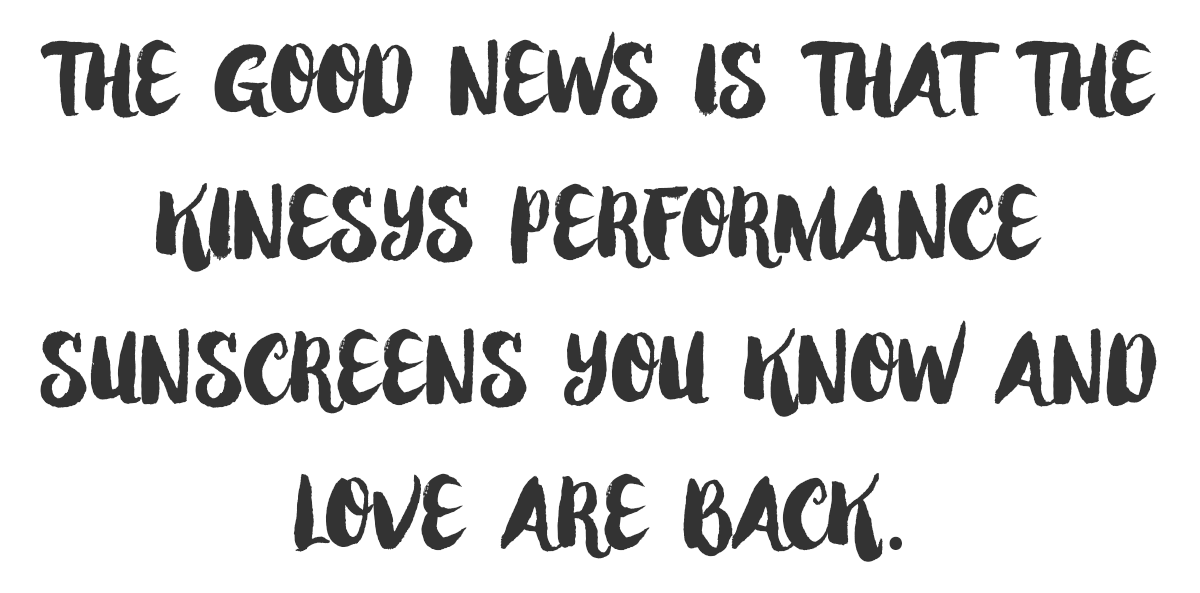 THE GOOD NEWS IS THAT THE
KINESYS PERFORMANCE
SUNSCREENS YOU KNOW AND
LOVE ARE BACK.